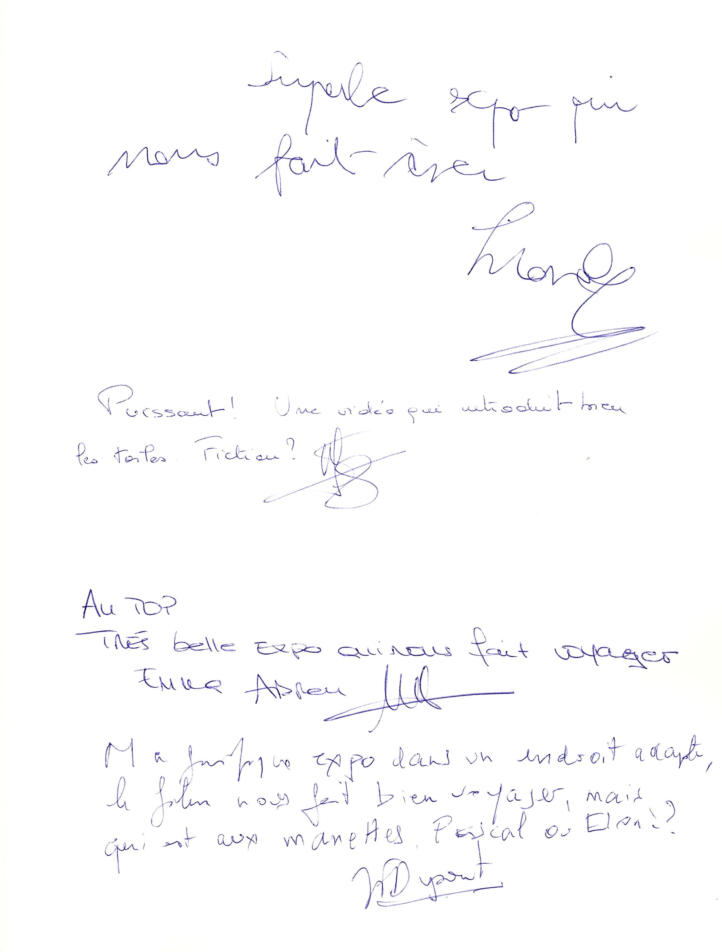 Superbe expo qui
nous fait rêver
Puissant! Une vidéo qui introduit bien
les toiles. Fiction?
Au TOP
TRÈS belle expo qui nous fait voyager
Emma
Magnifique expo dans un endroit adapté,
le film nous fait bien voyager, mais
qui est aux manettes, Pascal ou Elon!?
Dupont